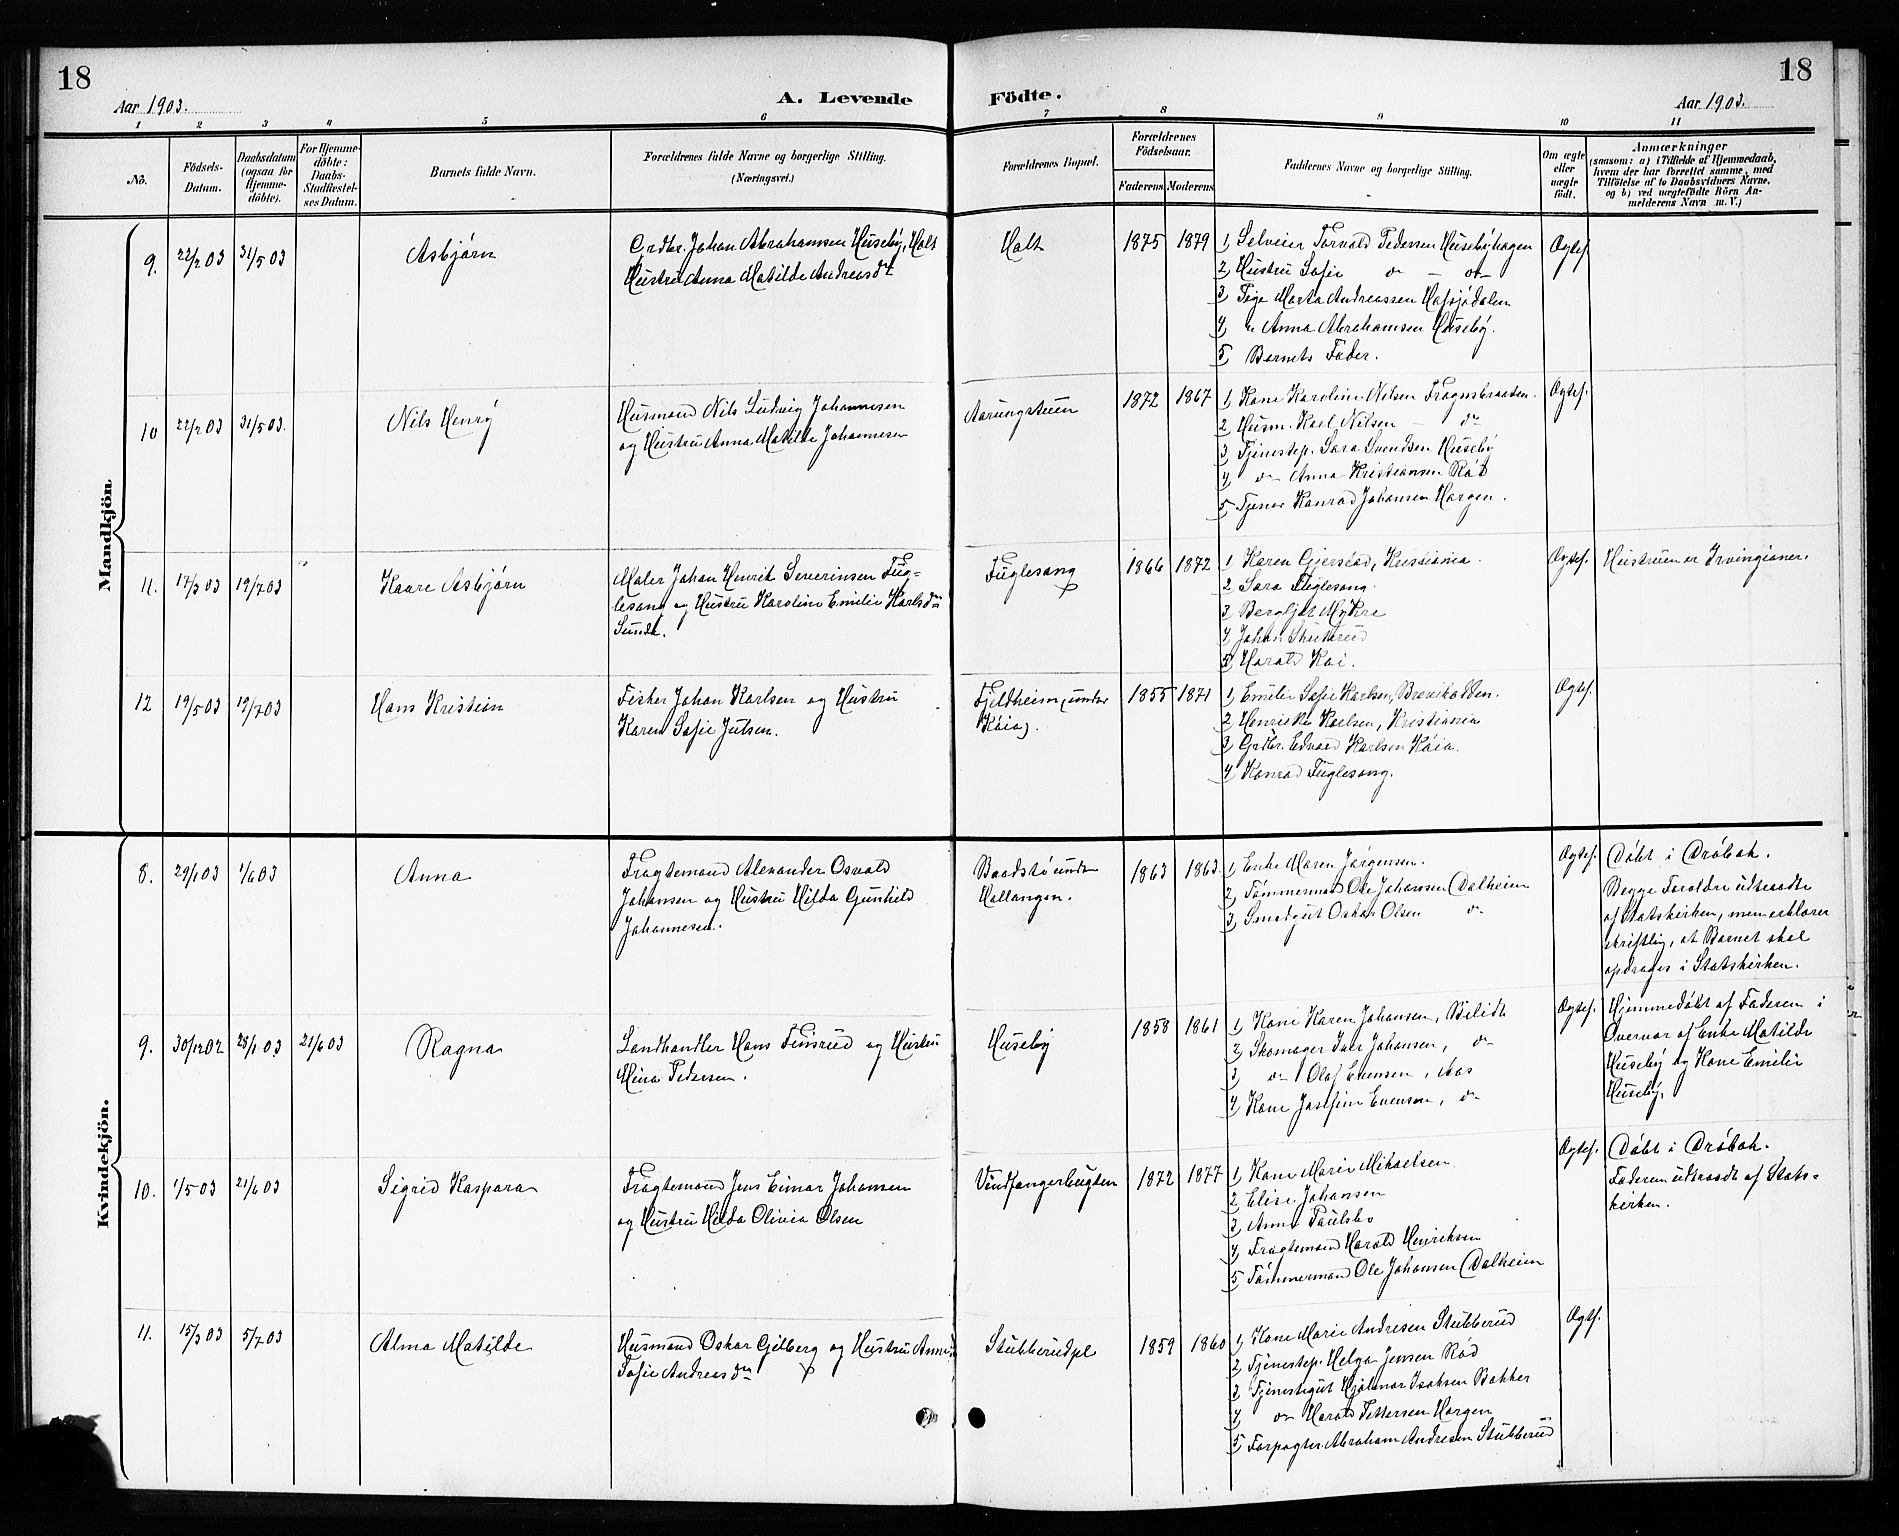 18
18
Aar 1903.
A. Levende
Födte.
Aar 1903.
1 2 3 4 5 6 7 8 9 10 11
No.
Födsels-Datum.
Daabsdatum (ogsaa for Hjemme-döbte).
For Hjemme-döbte: Daabs-Stadfæstel-ses Datum.
Barnets fulde Navn.
Forældrenes fulde Navne og borgerlige Stilling. (Næringsvei.)
Forældrenes Bopæl.
Forældrenes Födselsaar.
Faderens
Moderens
Faddernes Navne og borgerlige Stilling.
Om ægte eller uægte födt.
Anmærkninger
(saasom: a) i Tilfælde af Hjemmedaab, hvem der har forrettet samme, med Tilföielse af to Daabsvidners Navne, og b) ved uægtefödte Börn Anmelderens Navn m. V.)
Mandkjön.
9. 22/2 03 31/5 03 Asbjørn
Grdbr. Johan Abrahamsen Huseby, Holt
Hustru Anna Matilde Andreasdtr
Holt 1875 1879
1, Selveier Torvald Pedersen Husebyhagen
2, Hustru Sofie do — do
3, Pige Marta Andreassen Hafsjødalen
4, " Anna Abrahamsen Huseby.
5, Barnets Fader.
Ægtef.
10 22/2 03 31/5 03. Nils Henry
Husmand Nils Ludvig Johannesen
og Hustru Anna Matilde Johannesen
Aarungstuen 1872 1867
1, Kone Karoline Nilsen Frognsbraaten.
2, Husm. Karl Nilsen — do
3, Tjenestep. Sara Svendsen Huseby
4, do Anna Kristiansen Rød
5, Tjener Konrad Johansen Horgen.
Ægtef.
11. 17/3 03 19/7 03 Kaare Asbjørn
Maler Johan Henrik Severinsen Fug-
lesang og Hustru Karoline Emilie Karlsdtr
Sunde.
Fuglesang 1866 1872
1, Karen Gjerstad, Kristiania.
2, Sara Fuglesang.
3, Bergljot Myhre
4, Johan
5, Harald Kai.
Ægtef. Hustruen er Irvingianer.
12 19/5 03 19/7 03 Hans Kristein
Fisker Johan Karlsen og Hustru
Karen Sofie Julsen.
Fjeldheim (under
Kaia).
1855 1871
1, Emilie Sofie Karlsen,
2, Henrikke Karlsen, Kristiania
3, Grdbr. Edvard Karlsen Kaia.
4, Konrad Fuglesang.
Ægtef.
Kvindekjön.
8. 29/1 03 1/6 03 Anna
Fragtemand Alexander Osvald
Johansen og Hustru Hilda Gunhild
Johannesen.
Baadstø under
Hallangen.
1863 1863.
1, Enke Maren Jørgensen.
2, Tømmermand Ole Johansen Dalheim
3, Smedgut Oskar Olsen do
Ægtef. Døbt i Drøbak.
Begge Forældre udtraadte
af Statskirken, men erklærer
skriftlig, at Barnet skal
opdrages i Statskirken.
9. 30/12 02 28/1 03 21/6 03 Ragna
Landhandler Hans Finsrud og Hustru
Mina Pedersen.
Huseby 1858 1861
1, Kone Karen Johansen, Bilidt
2, Skomager Johansen, do
3, do Olaf Evensen, Aas
4, Kone Josefine Evensen, do
Ægtef. Hjemmedøbt af Faderen i
Overvær af Enke Matilde
Huseby og Kone Emilie
Huseby.
10. 1/5 03 21/6 03 Sigrid Kaspara
Fragtemand Jens Einar Johansen
og Hustru Hilda Olivia Olsen
Vindfangerbugten 1872 1877
1, Kone Marie Mikaelsen
2, Elise Johansen
3, Anna Paulsbo
4, Fragtemand Harald Henriksen
5, Tømmermand Ole Johansen Dalheim
Ægtef. Døbt i Drøbak.
Faderen udtraadt af Stats-
kirken.
11. 15/3 03 5/7 03 Alma Matilde
Husmand Oskar Gjelberg og Hustru Anne
Sofie Andreasdtr
Stubberudpl 1859 1860
1, Kone Marie Andresen Stubberud
2, Tjenestep. Helga Jensen Rød
3, Tjenestegut Hjalmar Isaksen Bakker
4, do Harald Pettersen Horgen
5, Forpagter Abraham Andresen Stubberud
Ægtf.